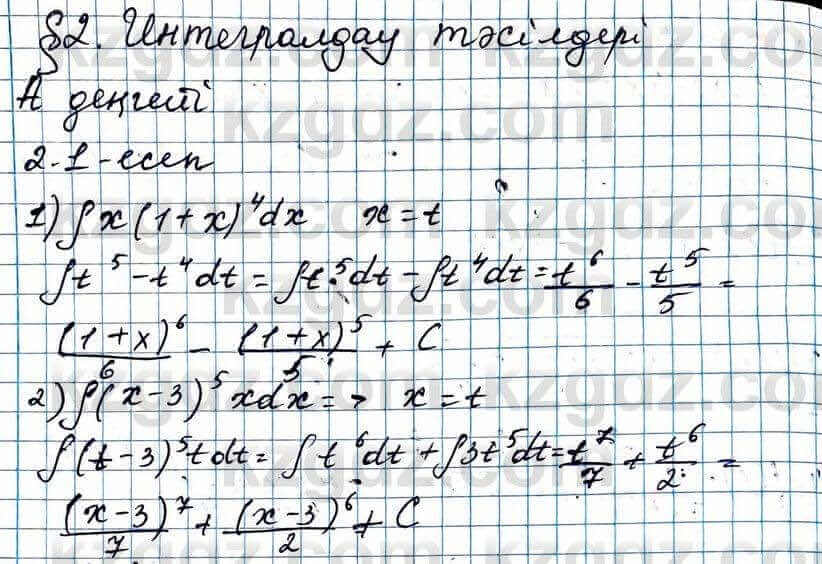 §2. Интегралдау тәсілдері
А деңгейі
2.1-есеп
1) ∫x(1+x)⁴dx x=t
∫t⁵-t⁴dt=∫t⁵dt-∫t⁴dt=t⁶/6-t⁵/5=
(1+x)⁶/6-(1+x)⁵/5+C
2) ∫(x-3)⁵xdx=> x=t
∫(t-3)⁵tdt=∫t⁶dt+∫3t⁵dt=t⁷/7+t⁶/2=
(x-3)⁷/7+(x-3)⁶/2+C